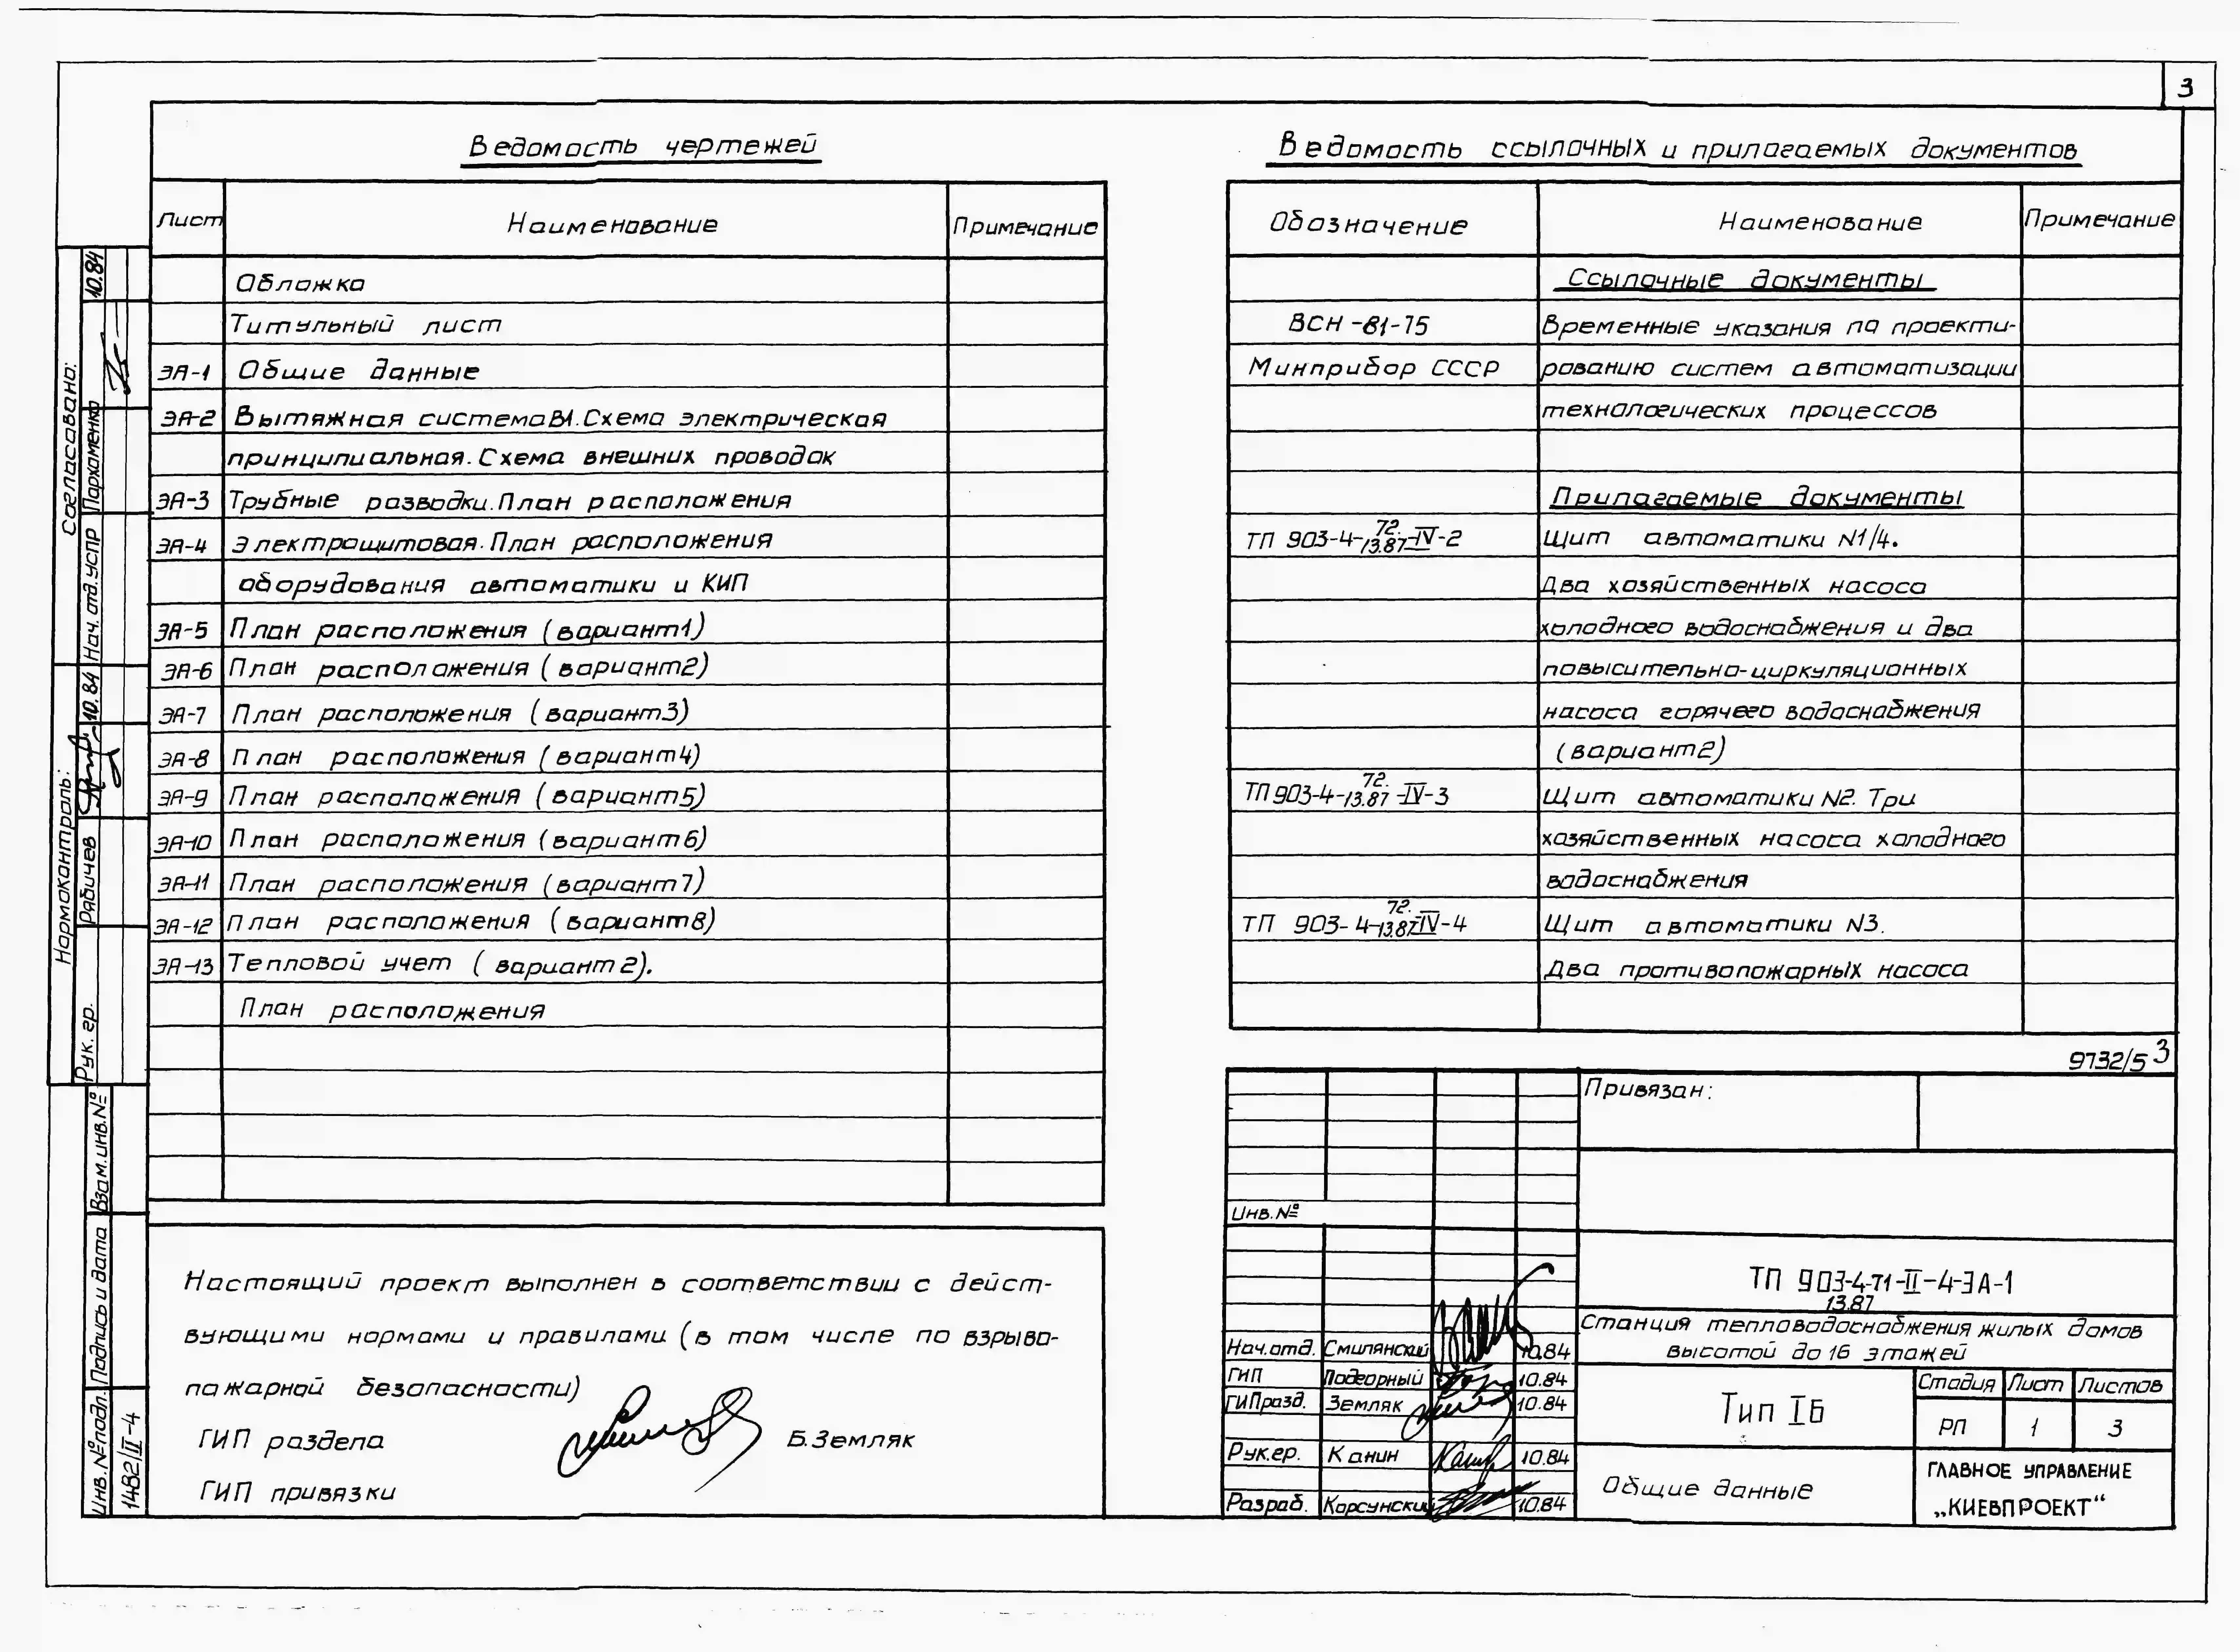 3
Ведомость чертежей
Лист Наименование Примечание
Обложка
Титульный лист
ЭА-1 Общие данные
ЭА-2 Вытяжная система В1. Схема электрическая
принципиальная. Схема внешних проводок
ЭА-3 Трубные разводки. План расположения
ЭА-4 Электрощитовая. План расположения
оборудования автоматики и КИП
ЭА-5 План расположения (вариант 1)
ЭА-6 План расположения (вариант 2)
ЭА-7 План расположения (вариант 3)
ЭА-8 План расположения (вариант 4)
ЭА-9 План расположения (вариант 5)
ЭА-10 План расположения (вариант 6)
ЭА-11 План расположения (вариант 7)
ЭА-12 План расположения (вариант 8)
ЭА-13 Тепловой учет (вариант 2).
План расположения
Ведомость ссылочных и прилагаемых документов
Обозначение Наименование Примечание
Ссылочные документы
ВСН-81-75 Временные указания по проекти-
Минприбор СССР рованию систем автоматизации
технологических процессов
Прилагаемые документы
ТП 903-4-72.13.87-IV-2 Щит автоматики N1/4.
Два хозяйственных насоса
холодного водоснабжения и два
повысительно-циркуляционных
насоса горячего водоснабжения
(вариант 2)
ТП 903-4-72.13.87-IV-3 Щит автоматики N2. Три
хозяйственных насоса холодного
водоснабжения
ТП 903-4-72.13.87-IV-4 Щит автоматики N3.
Два противопожарных насоса
9732/5 3
Настоящий проект выполнен в соответствии с дейст-
вующими нормами и правилами (в том числе по взрыво-
пожарной безопасности)
ГИП раздела Б. Земляк
ГИП привязки
Привязан:
Инв. №
ТП 903-4-71-II-4-ЭА-1
13.87
Станция тепловодоснабжения жилых домов
высотой до 16 этажей
Нач. отд. Смилянский 10.84
ГИП Подгорный 10.84
ГИП разд. Земляк 10.84
Рук. гр. Канин 10.84
Разраб. Корсунский 10.84
Тип IБ
Стадия Лист Листов
РП 1 3
Общие данные
ГЛАВНОЕ УПРАВЛЕНИЕ
„КИЕВПРОЕКТ“
Согласовано:
Нач. отд. УСПР Пархоменко 10.84
Нормоконтроль:
Рук. гр. Рябичев 10.84
Взам. инв. №
Подпись и дата
Инв. № подл.
1482/II-4